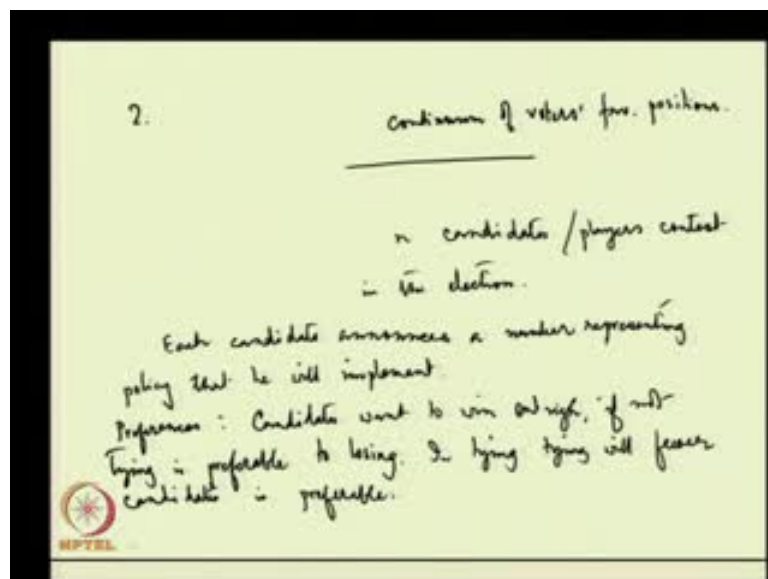 2. continuum of voters' fav. positions.
n candidates / players contest
in the election.
Each candidate announces a number representing
policy that he will implement
Preferences : Candidates want to win outrigh, if not
Tying is preferable to losing. In tying tying will fewer
candidates is preferable.
NPTEL